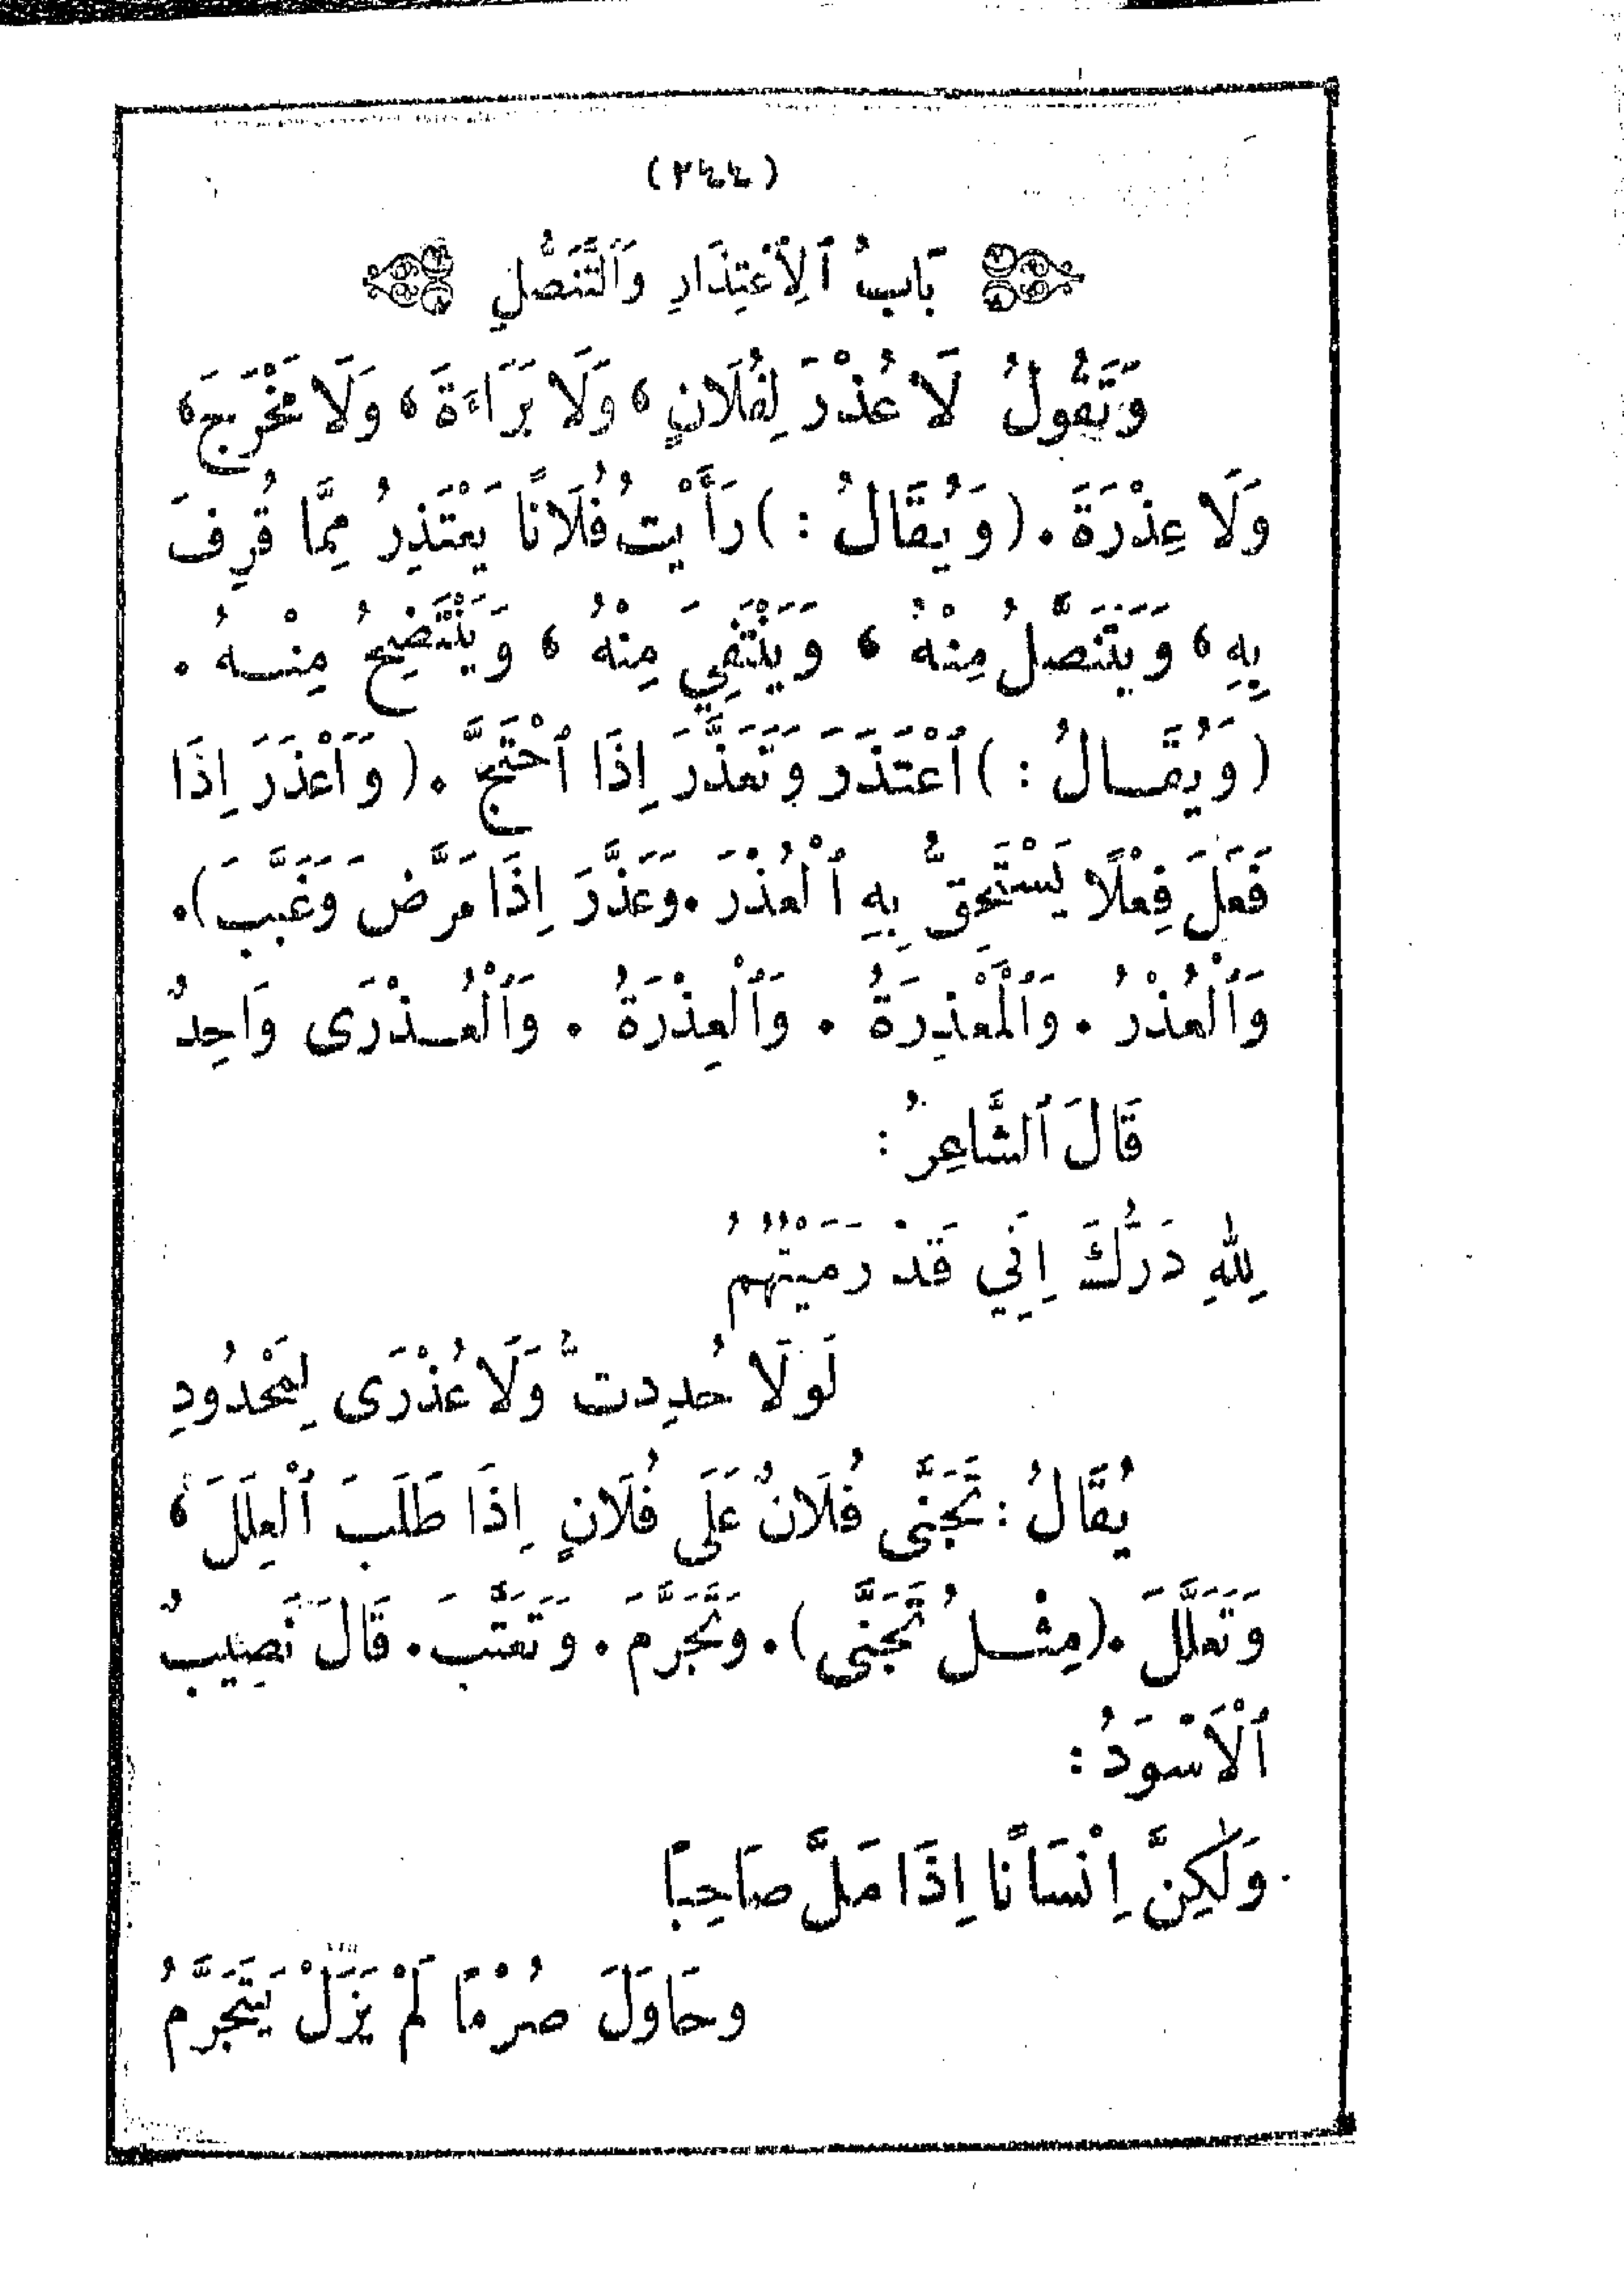 (٢٤٤)
بَابُ ٱلِٱعْتِذَارِ وَٱلتَّنَصُّلِ
وَتَقُولُ لَا عُذْرَ لِفُلَانٍ، وَلَا بَرَاءَةَ، وَلَا مَخْرَجَ،
وَلَا عِذْرَةَ. (وَيُقَالُ:) رَأَيْتُ فُلَانًا يَعْتَذِرُ مِمَّا قُرِفَ
بِهِ، وَيَتَنَصَّلُ مِنْهُ، وَيَنْتَفِي مِنْهُ، وَيَنْتَضِحُ مِنْهُ.
(وَيُقَالُ:) ٱعْتَذَرَ وَتَعَذَّرَ إِذَا ٱحْتَجَّ. (وَأَعْذَرَ إِذَا
فَعَلَ فِعْلًا يَسْتَحِقُّ بِهِ ٱلْعُذْرَ. وَعَذَّرَ إِذَا مَرَّضَ وَغَبَّبَ).
وَٱلْعُذْرُ. وَٱلْمَعْذِرَةُ. وَٱلْعِذْرَةُ. وَٱلْعُذْرَى وَاحِدٌ
قَالَ ٱلشَّاعِرُ:
لِلّٰهِ دَرُّكَ إِنِّي قَدْ رَمَيْتُهُمُ
لَوْلَا حُدِدتُّ وَلَا عُذْرَى لِمَحْدُودِ
يُقَالُ: تَجَنَّى فُلَانٌ عَلَى فُلَانٍ إِذَا طَلَبَ ٱلْعِلَلَ،
وَتَعَلَّلَ. (مِثْلُ تَجَنَّى). وَتَجَرَّمَ. وَتَعَتَّبَ. قَالَ نَصِيبٌ
ٱلْأَسْوَدُ:
وَلٰكِنَّ إِنْسَانًا إِذَا مَلَّ صَاحِبًا
وَحَاوَلَ صُرْمًا لَمْ يَزَلْ يَتَجَرَّمُ